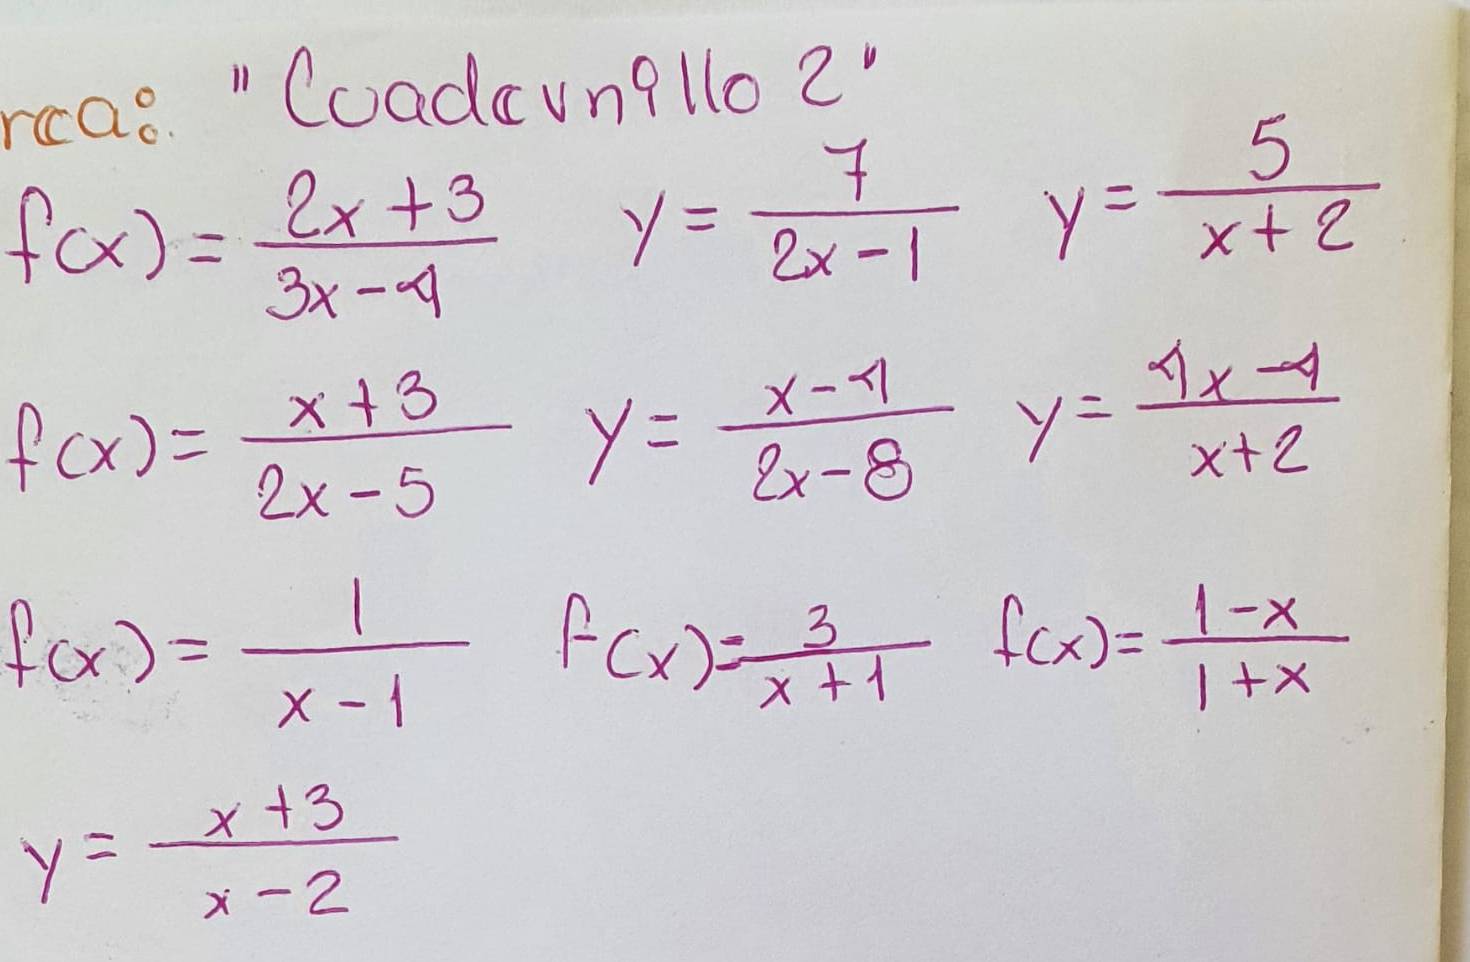 rea: "Cuadernillo 2"
f(x) = (2x + 3)/(3x - 4)   y = 7/(2x - 1)   y = 5/(x + 2)
f(x) = (x + 3)/(2x - 5)   y = (x - 4)/(2x - 8)   y = (4x - 4)/(x + 2)
f(x) = 1/(x - 1)   f(x) = 3/(x + 1)   f(x) = (1 - x)/(1 + x)
y = (x + 3)/(x - 2)